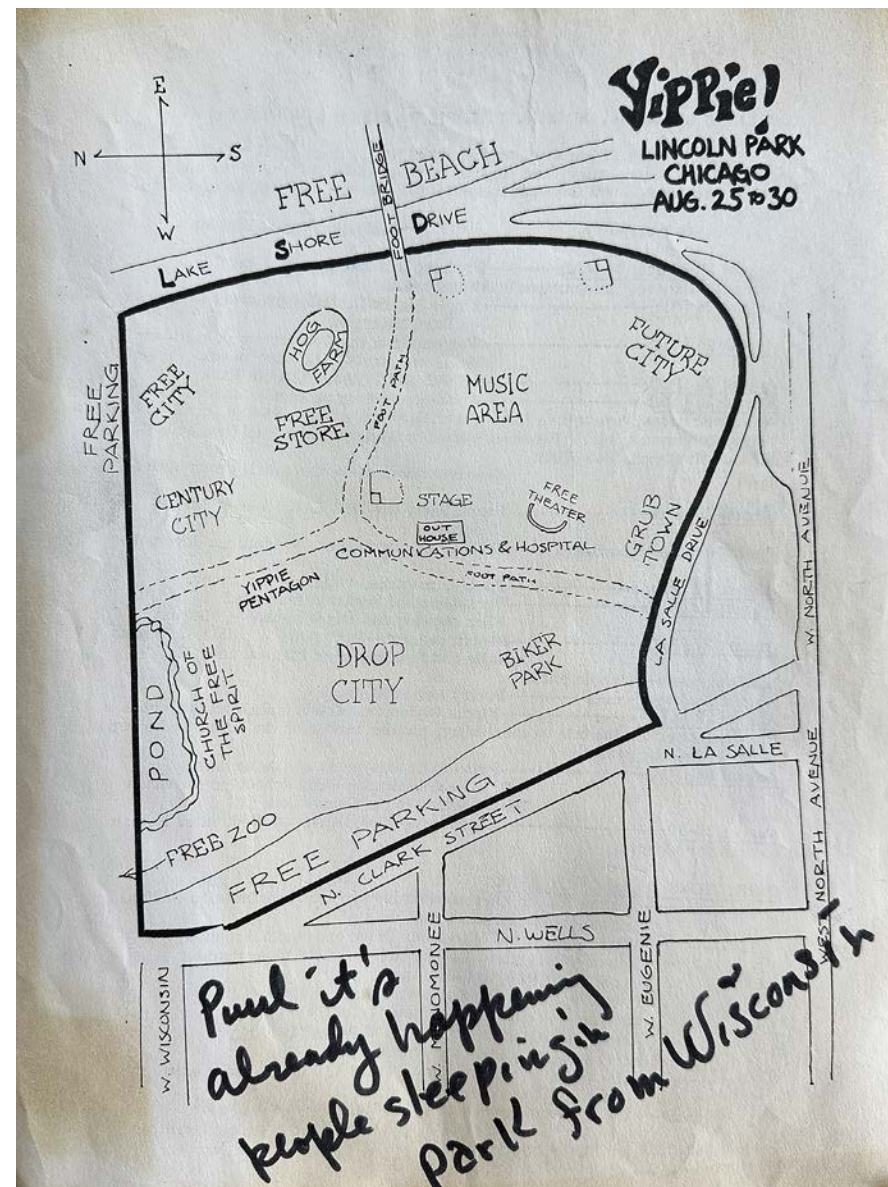 Yippie!
LINCOLN PARK
CHICAGO
AUG. 25 TO 30
E
N
S
W
FREE BEACH
FOOT BRIDGE
LAKE SHORE DRIVE
FREE
PARKING
FREE
CITY
HOG
FARM
FREE
STORE
FOOT PATH
MUSIC
AREA
FUTURE
CITY
CENTURY
CITY
STAGE
FREE
THEATER
OUT
HOUSE
COMMUNICATIONS & HOSPITAL
GRUB
TOWN
LA SALLE DRIVE
W. NORTH AVENUE
YIPPIE
PENTAGON
FOOT PATH
POND
CHURCH OF
THE FREE
SPIRIT
DROP
CITY
BIKER
PARK
FREE ZOO
FREE PARKING
N. CLARK STREET
N. LA SALLE
WEST NORTH AVENUE
N. WELLS
W. WISCONSIN
W. MENOMONEE
W. EUGENIE
Paul it's
already happening
people sleeping in
park from Wisconsin